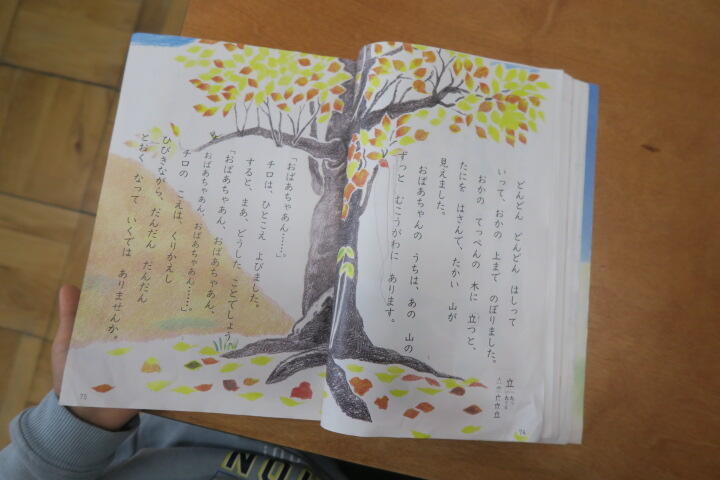 どんどん どんどん はしって
いって、おかの 上まで のぼりました。
おかの てっぺんの 木に 立つと、
たにを はさんで、たかい 山が
見えました。
おばあちゃんの うちは、あの 山の
ずっと むこうがわに あります。
立
74
「おばあちゃあん……。」
チロは、ひとこえ よびました。
すると、まあ、どうした ことでしょう。
「おばあちゃあん、おばあちゃあん、
おばあちゃあん、おばあちゃあん……。」
チロの こえは、くりかえし
ひびきながら、だんだん だんだん
とおく なって いくでは ありませんか。
75